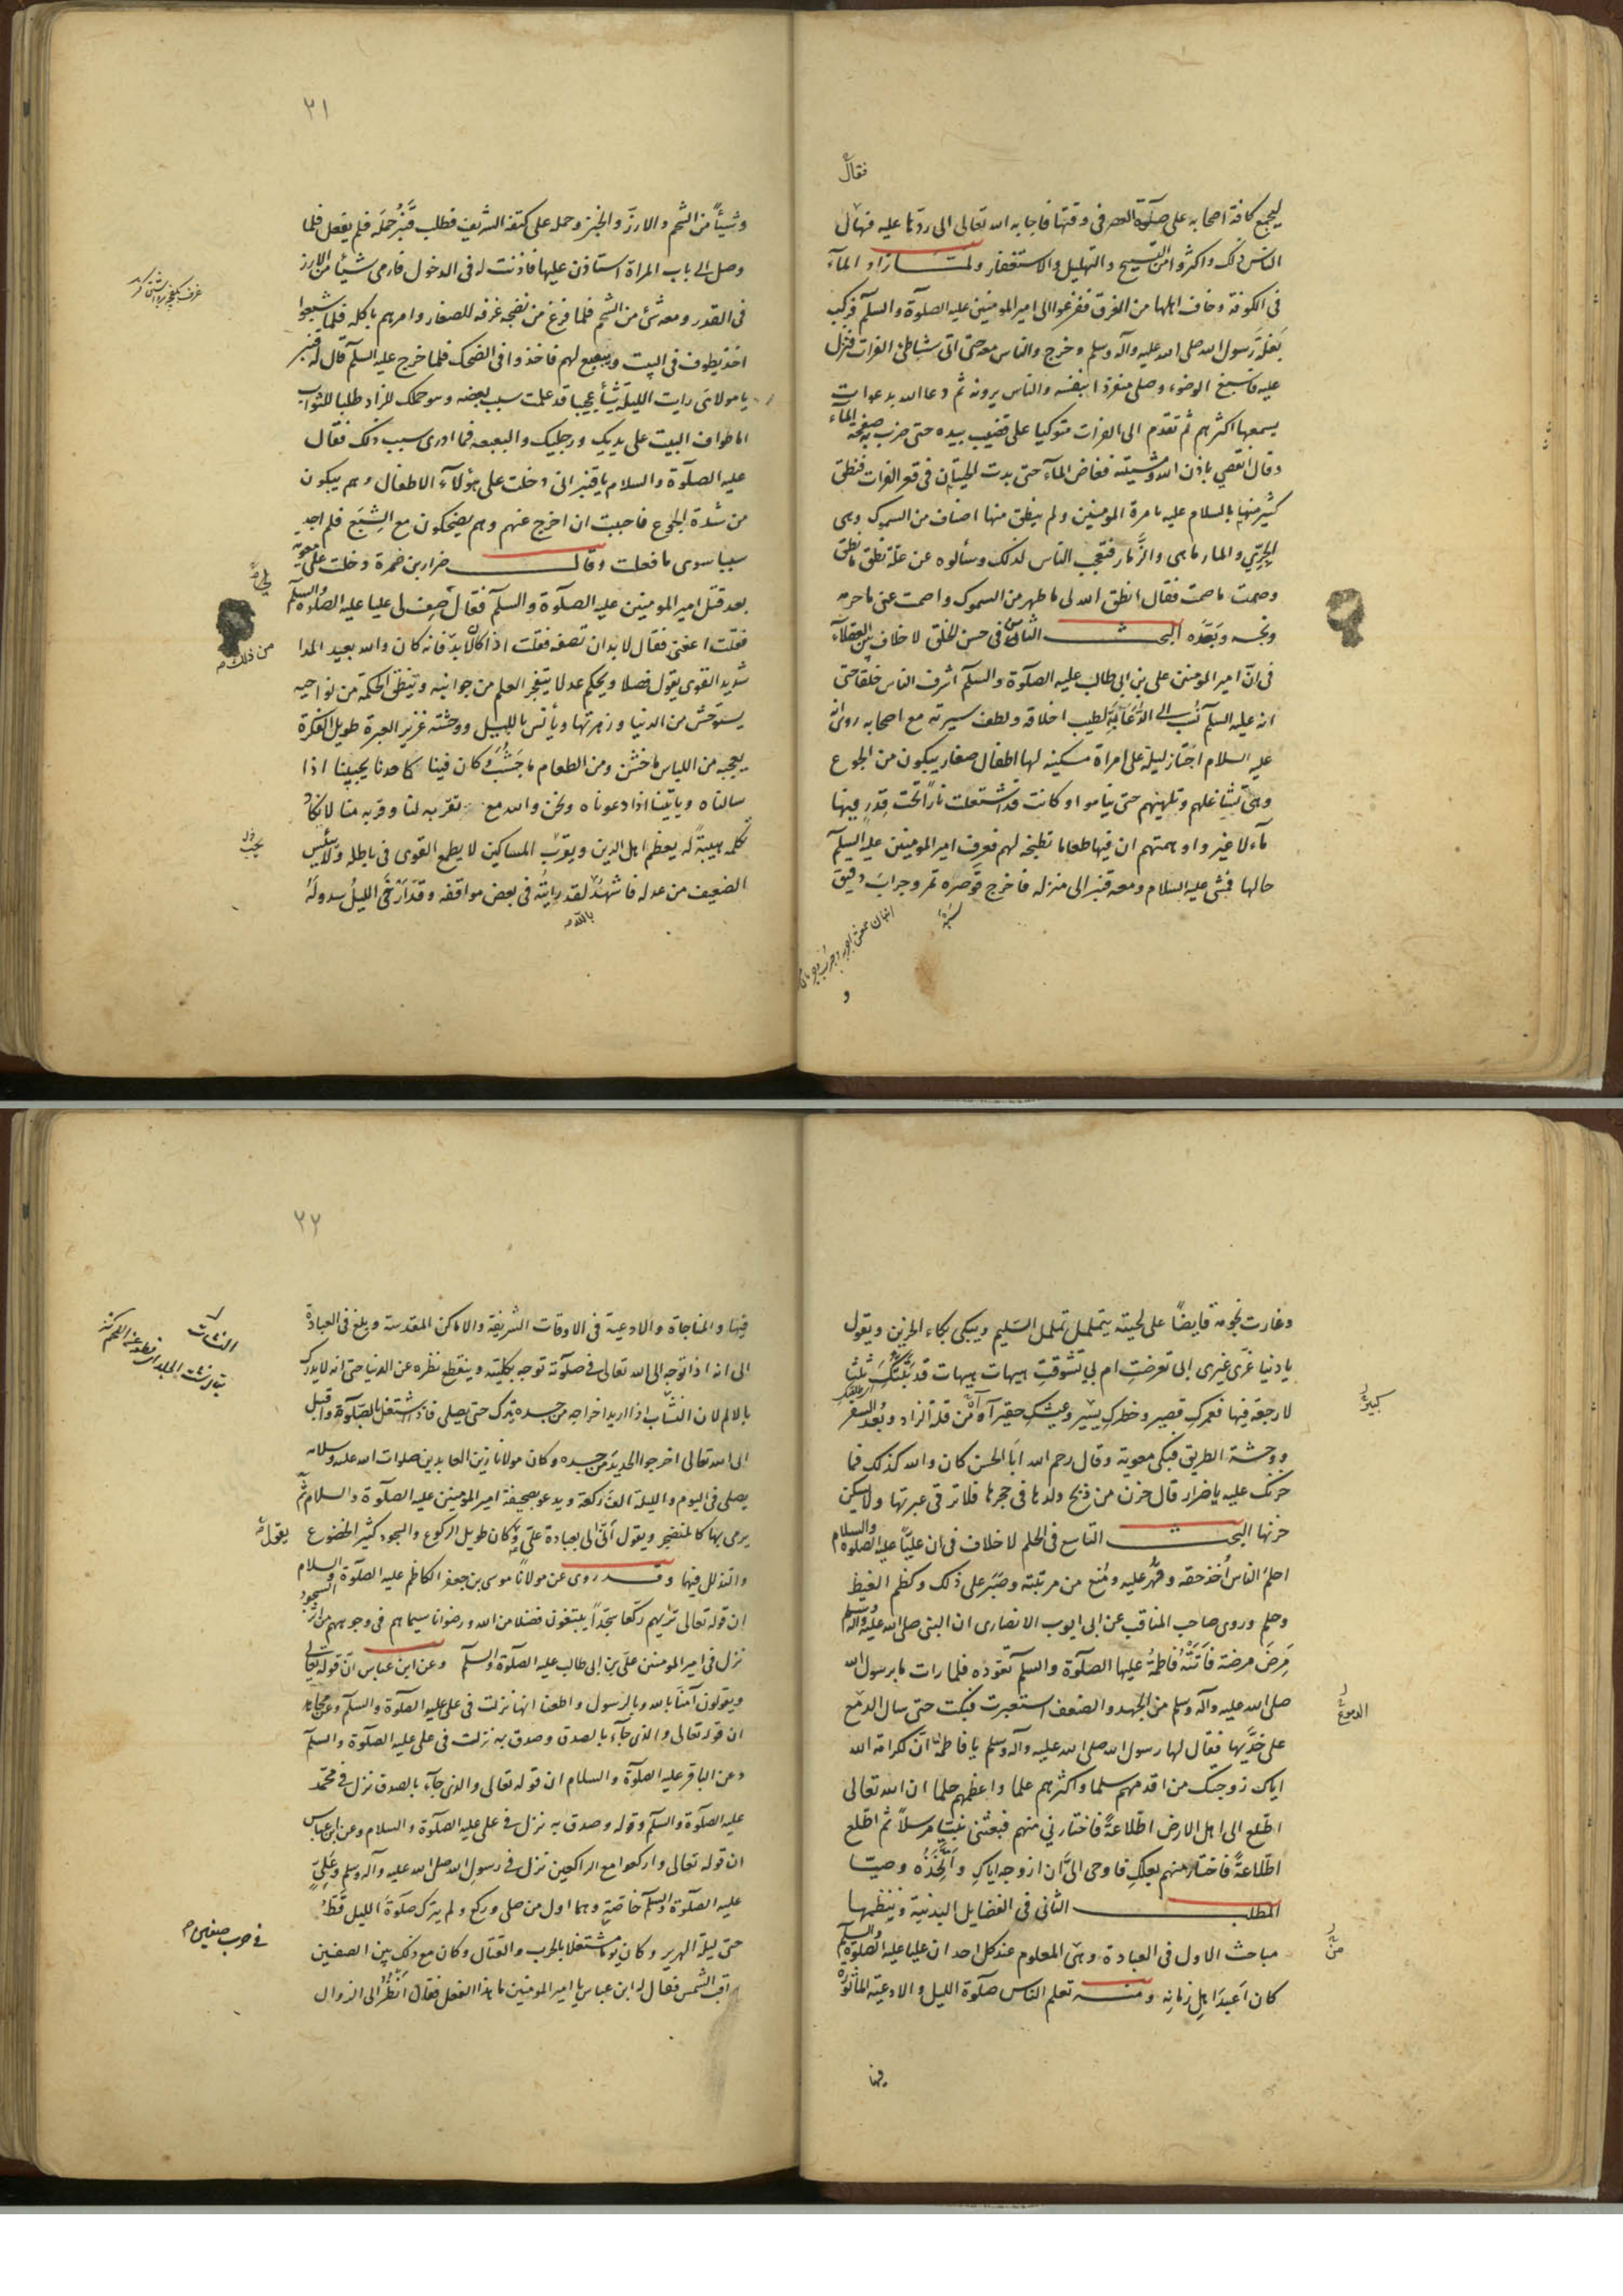 فقال
ليجمع كافة اصحابه على صلوة العصر فى وقتها فاجابه الله تعالى الى ردّها عليه فهال
الناس ذلك واكثروا من التسبيح والتهليل والاستغفار ولمّا زاد المآء
فى الكوفة وخاف اهلها من الغرق ففزعوا الى امير المومنين عليه الصلوة والسلم فركب
بغلة رسول الله صلى الله عليه وآله وسلم وخرج والناس معه حتى اتى شاطئ الفرات فنزل
عليه فاسبغ الوضوء وصلى منفردا بنفسه والناس يرونه ثم دعا الله بدعوات
يسمعها اكثرهم ثم تقدم الى الفرات متوكيا على قضيب بيده حتى ضرب به صفحة المآء
وقال انقص باذن الله ومشيته فغاض المآء حتى بدت الحيتان فى قعر الفرات فنطق
كثير منها بالسلام عليه بامرة المومنين ولم ينطق منها اصناف من السموك وهى
الجرّي والمارماهى والزّمّار فتعجب الناس لذلك وسألوه عن علّة نطق ما نطق
وصمت ما صمت فقال انطق الله لى ما طهر من السموك واصمت عنى ما حرمه
ونجسه وبعّده البحث الثامن فى حسن الخلق لا خلاف بين العقلاء
فى انّ امير المومنين على بن ابى طالب عليه الصلوة والسلم اشرف الناس خلقا حتى
انه عليه السلم نُسب الى الدّعابة لطيب اخلاقه ولطف سيرته مع اصحابه روى انّه
عليه السلام اجتاز ليلة على امراة مسكينه لها اطفال صغار يبكون من الجوع
وهى تشاغلهم وتلهيهم حتى يناموا وكانت قد اشتعلت ناراً تحت قدر فيها
مآء لا غير واوهمتهم ان فيها طعاما تطبخه لهم فعرف امير المومنين عليه السلم
حالها فمشى عليه السلام ومعه قنبر الى منزله فاخرج قوصره تمر وجراب دقيق
و
٢١
وشيئاً من الشحم والارز والخبز وحمله على كتفه الشريف فطلب قنبر حمله فلم يفعل فلما
وصل الى باب المراة استاذن عليها فاذنت له فى الدخول فارمى شيئا من الارز
فى القدر ومعه شئ من الشحم فلما فرغ من نضجه غرفه للصغار وامرهم باكله فلما شبعوا
اخذ يطوف فى البيت ويبعبع لهم فاخذوا فى الضحك فلما خرج عليه السلم قال له قنبر
يا مولاى رايت الليلة شيأ عجيبا قد علمت سبب بعضه وهو حملك للزاد طلبا للثواب
اما طوافك البيت على يديك ورجليك والبعبعه فما ادرى سبب ذلك فقال
عليه الصلوة والسلام يا قنبر انى دخلت على هؤلآء الاطفال وهم يبكون
من شدة الجوع فاحببت ان اخرج عنهم وهم يضحكون مع الشبع فلم اجد
سببا سوى ما فعلت وقال ضرار بن ضمرة دخلت على معوية
بعد قتل امير المومنين عليه الصلوة والسلم فقال صف لى عليا عليه الصلوة والسلم
فقلت اعفنى فقال لا بد ان تصفه فقلت اذا كان لا بدّ فانه كان والله بعيد المدا
من ذلك
شديد القوى يقول فصلا ويحكم عدلا يتفجر العلم من جوانبه وتنطق الحكمة من نواحيه
يستوحش من الدنيا وزهرتها ويأنس بالليل ووحشته غزير العبرة طويل الفكرة
يعجبه من اللباس ما خشن ومن الطعام ما جشب وكان فينا كاحدنا يجيبنا اذا
سالناه وياتينا اذا دعوناه ونحن والله مع تقربه لنا وقربه منا لا نكاد
نكلمه هيبة له يعظم اهل الدين ويقرب المساكين لا يطمع القوى فى باطله ولا يئس
الضعيف من عدله فاشهد لقد رايته فى بعض مواقفه وقد ارخى الليل سدوله
بالله
وغارت نجومه قابضاً على لحيته يتململ تململ السليم ويبكى بكاء الحزين ويقول
يا دنيا غرّى غيرى ابى تعرضت ام بى تشوقت هيهات هيهات قد بتتك ثلثا
لا رجعة فيها فعمرك قصير وخطرك يسير وعيشك حقير آه آه من قلة الزاد وبُعد السفر
ووحشة الطريق فبكى معوية وقال رحم الله ابا الحسن كان والله كذلك فما
حزنك عليه يا ضرار قال حزن من ذبح ولدها فى حجرها فلا ترقى عبرتها ولا يسكن
حزنها البحث التاسع فى الحلم لا خلاف فى ان عليّاً عليه الصلوة والسلام
احلم الناس أخذ حقه وقهر عليه ومنع من مرتبته وصبر على ذلك وكظم الغيظ
وحلم وروى صاحب المناقب عن ابى ايوب الانصارى ان النبى صلى الله عليه وآله وسلم
مرض مرضة فاتته فاطمة عليها الصلوة والسلم تعوده فلما رات ما برسول الله
صلى الله عليه وآله وسلم من الجهد والضعف استعبرت فبكت حتى سال الدمع
الدموع
على خدّيها فقال لها رسول الله صلى الله عليه وآله وسلم يا فاطمة انّ لكرامة الله
اياك زوجتك من اقدمهم سلما واكثرهم علما واعظمهم حلما ان الله تعالى
اطّلع الى اهل الارض اطلاعةً فاختارنى منهم فبعثنى نبيّا مرسلاً ثم اطّلع
اطّلاعةً فاختار منهم بعلك فاوحى الىّ ان ازوجه اياك واتخذه وصيّا
المطلب الثانى فى الفضايل البدنية وينظمها
مباحث الاول فى العبادة وهى المعلوم عند كل احد ان عليا عليه الصلوة والسلم
من
كان اعبد اهل زمانه ومنه تعلم الناس صلوة الليل والادعية الماثورة
فيها
٢٢
فيها والمناجاة والادعية فى الاوقات الشريفة والاماكن المقدسة وبلغ فى العبادة
الى انه اذا توجه الى الله تعالى فى صلوته توجه بكليته وينقطع نظره عن الدنيا حتى انه لا يدرك
بالالم لان النشاب اذا اريد اخراجه من جسده يترك حتى يصلى فاذا اشتغل بالصلوة واقبل
الى الله تعالى اخرجوا الحديد من جسده وكان مولانا زين العابدين صلوات الله عليه وسلامه
يصلى فى اليوم والليلة الف ركعة ويدعو بصحيفة امير المومنين عليه الصلوة والسلام ثم
يرمى بها كالمتضجر ويقول أنّى لى بعبادة علىّ وكان طويل الركوع والسجود كثير الخضوع
والتذلل فيها وقد روى عن مولانا موسى بن جعفر الكاظم عليه الصلوة والسلام
ان قوله تعالى تريهم ركّعا سجّداً يبتغون فضلا من الله ورضوانا سيماهم فى وجوههم من اثر السجود
نزل فى امير المومنين علىّ بن ابى طالب عليه الصلوة والسلم وعن ابن عباس انّ قوله تعالى
ويقولون آمنا بالله وبالرسول واطعنا انها نزلت فى على عليه الصلوة والسلم وعن مجاهد
ان قوله تعالى والذى جآء بالصدق وصدق به نزلت فى على عليه الصلوة والسلم
وعن الباقر عليه الصلوة والسلام ان قوله تعالى والذى جآء بالصدق نزل فى محمّد
عليه الصلوة والسلم وقوله وصدق به نزل فى على عليه الصلوة والسلام وعن ابن عباس
ان قوله تعالى واركعوا مع الراكعين نزل فى رسول الله صلى الله عليه وآله وسلم وعلىّ
عليه الصلوة والسلم خاصّة وهما اول من صلى وركع ولم يترك صلوة الليل قطّ
حتى ليلة الهرير وكان يوما مشتغلا بالحرب والقتال وكان مع ذلك بين الصفين
فى حرب صفين
يراقب الشمس فقال له ابن عباس يا امير المومنين ما هذا الفعل فقال انظر الى الزوال